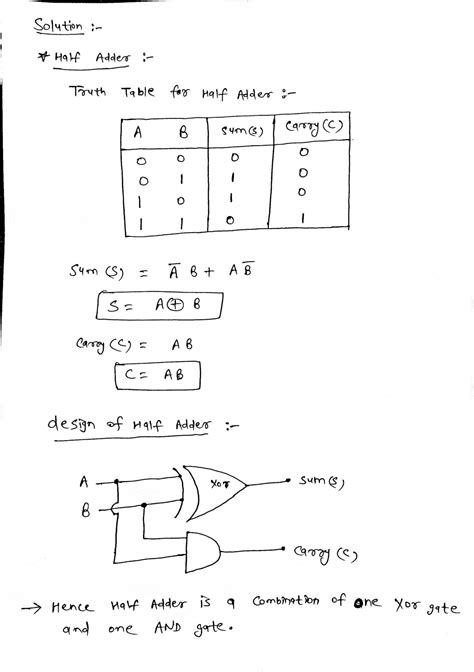 Solution :-
* Half Adder :-
Truth Table for Half Adder :-
A B Sum(S) Carry(C)
0 0 0 0
0 1 1 0
1 0 1 0
1 1 0 1
Sum (S) = A̅ B + A B̅
S = A ⊕ B
Carry (C) = A B
C = AB
design of Half Adder :-
A Xor Sum(S)
B
Carry (C)
→ Hence Half Adder is a Combination of one Xor gate
and one AND gate.